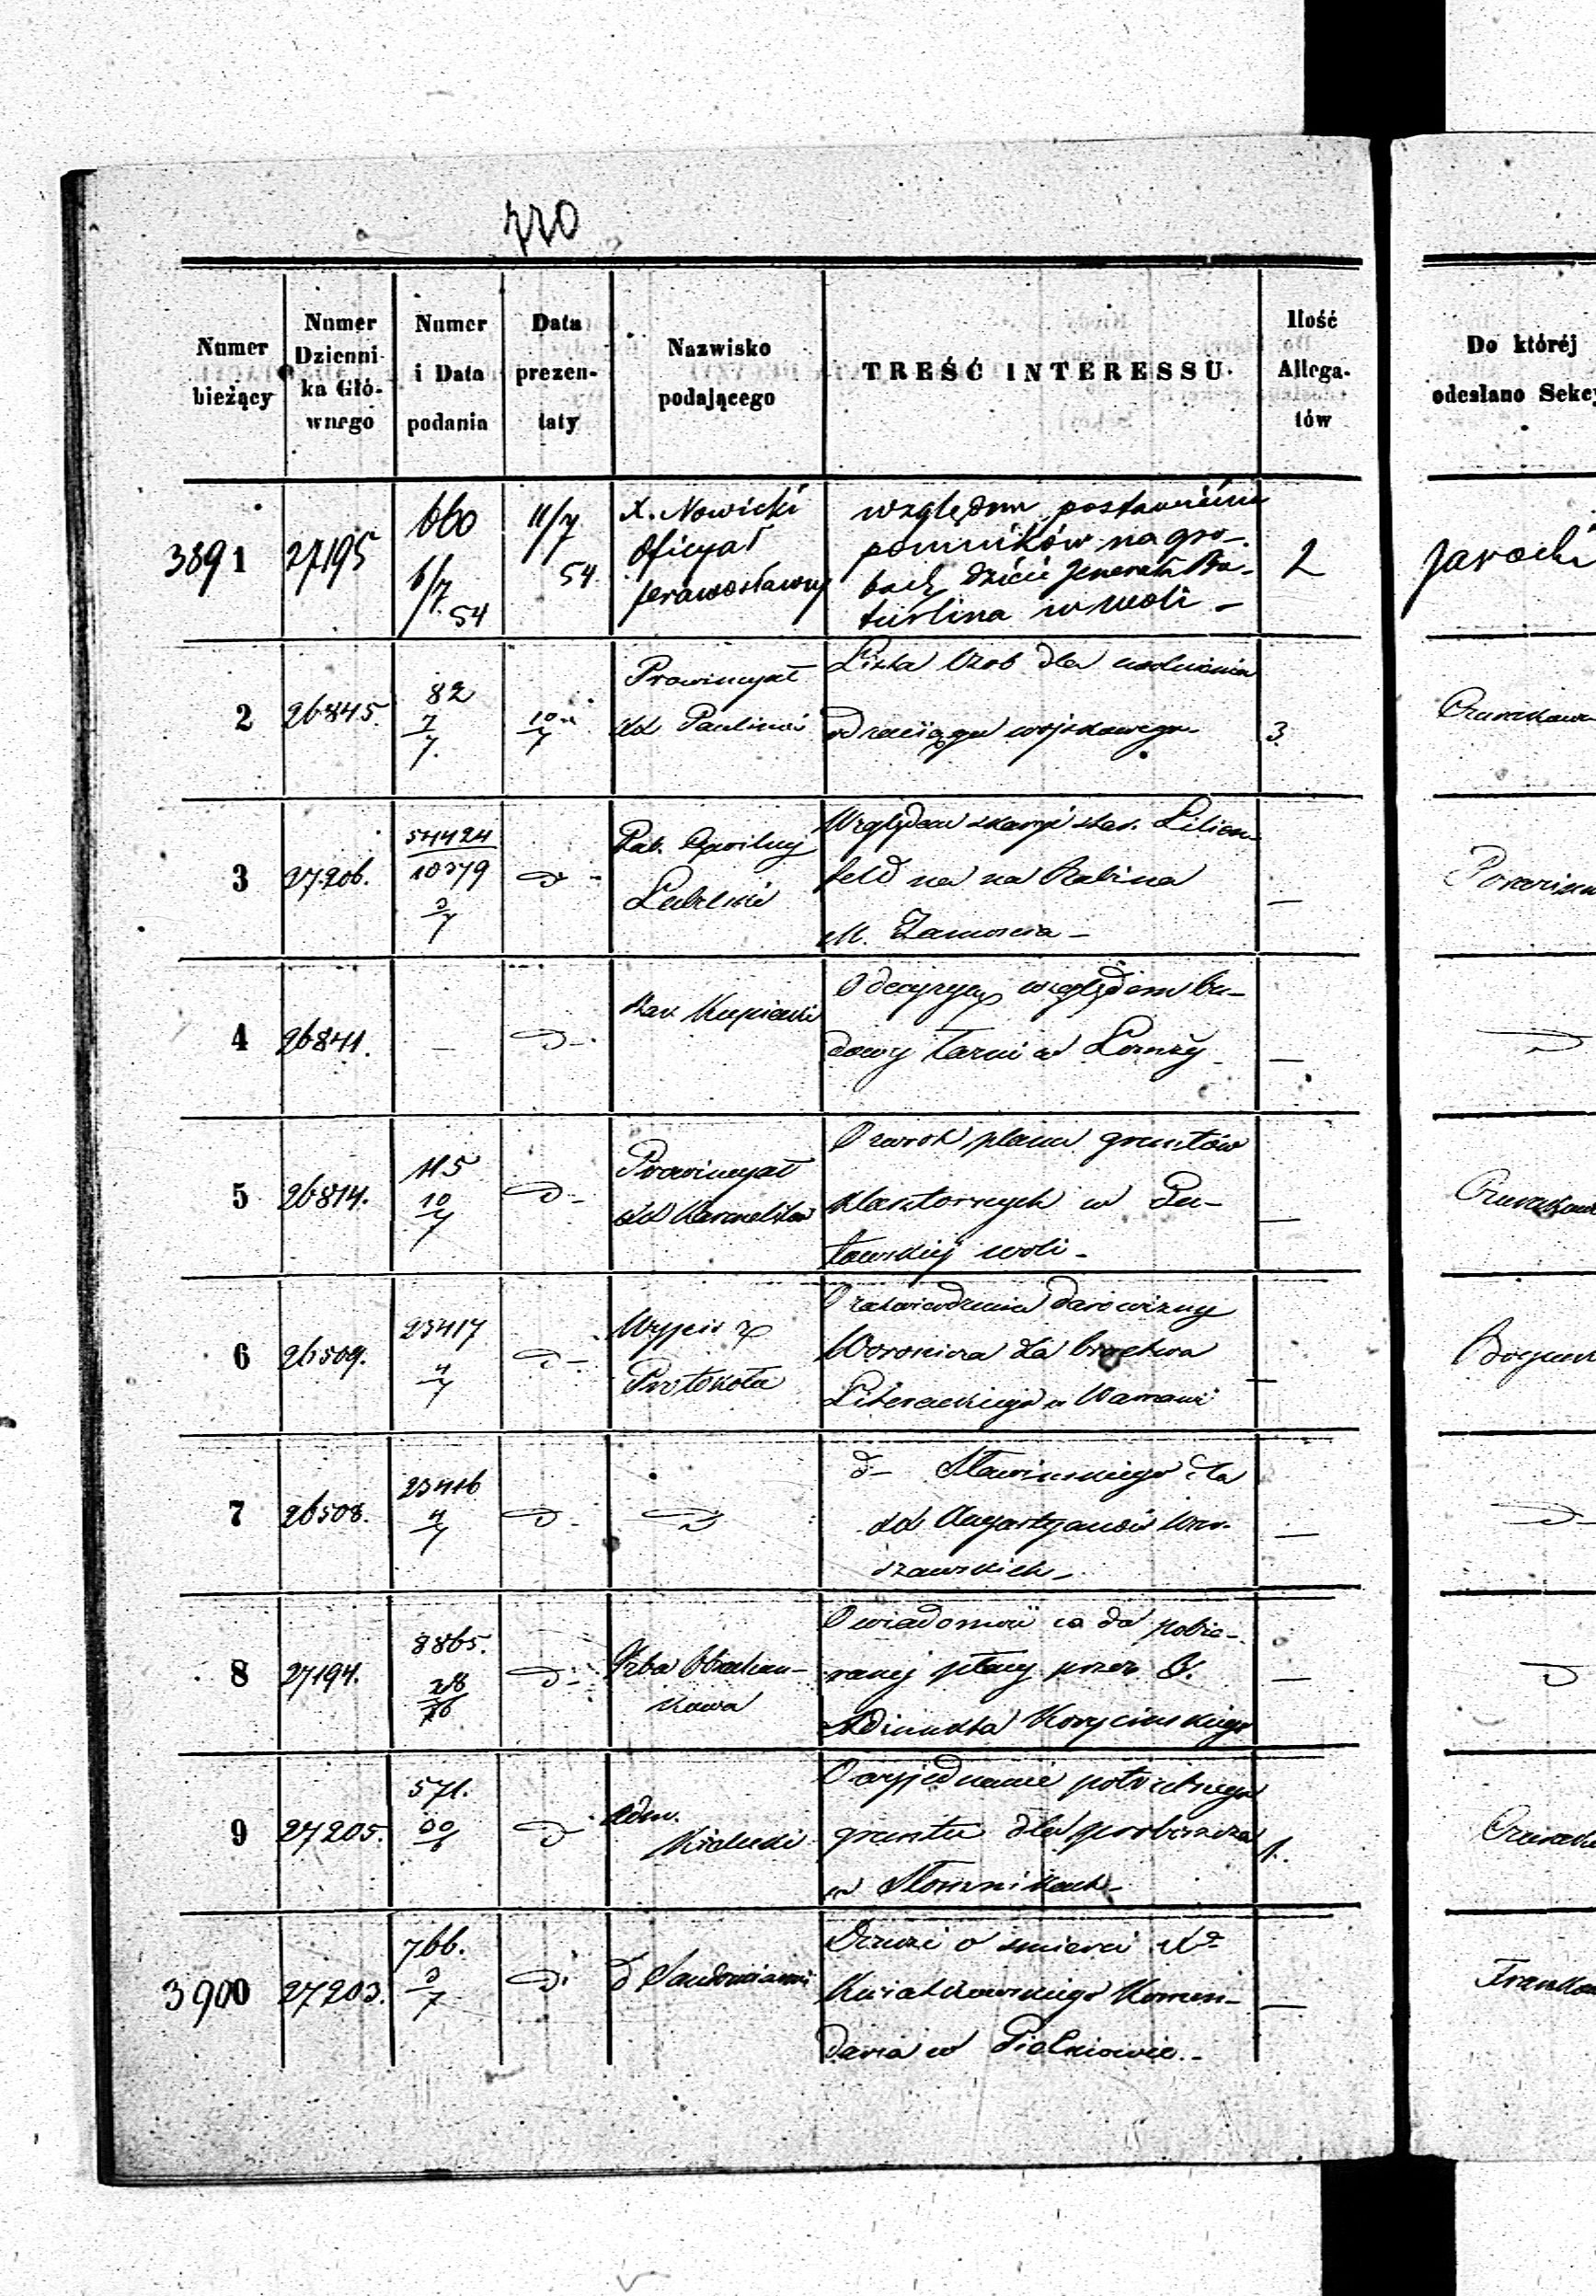 770
Numer bieżący
Numer Dzienni- ka Głó- wnego
Numer i Data podania
Data prezen- taty
Nazwisko podającego
TREŚĆ INTERESSU.
Ilość Allega- tów
Do któréj odesłano
3891 27195 660 6/7 54 11/7 54 X. Nowicki Oficyał prawosławny
względem postawienia
pomników na gro-
bach dzieci Jenerała Bu-
turlina w Woli - 2
2 26845. 82 7/7. 10/7 Prowincyał
OO Paulinów
Lista Osób dla uwolnienia
od zaciągu wojskowego 3.
3 27206. 54424 10379 3/7 D-
Rząd. Cywilny
Lubelski
Względem skargi star. Lilien-
feld na na Rabina
M. Zamościa - —
4 26841. — D-
O decyzyę względem bu-
dowy łaźni w Łomży —
5 26814. 115 10/7 D-
Prowincyał
OO Karmelitów
O zwrot planu gruntów
klasztornych w
woli - —
6 26509. 23417 4/7 D-
Wypis z
Protokołu
O zatwierdzenie darowizny
Woronicza dla bractwa
Literackiego w Warszawie —
7 26508. 23416 4/7 D- D
d- Sławińskiego dla
OO Augustyanów War-
szawskich - —
8 27194. 8865. 28/6 D-
Izba Obrachun-
kowa
O wiadomość co do pobie-
ranej płacy przez
Adjunkta Korycińskiego —
9 27205. 571. 30/6 D
Adm.
Kielecki
O wyjednanie potrzebnego
gruntu dla proboszcza
w Słomnikach - 1.
3900 27203. 766. 3/7 D-
d Sandomierski
Donosi o śmierci Xa
Kwiatkowskiego Komen-
darza w Pielniowie. - —